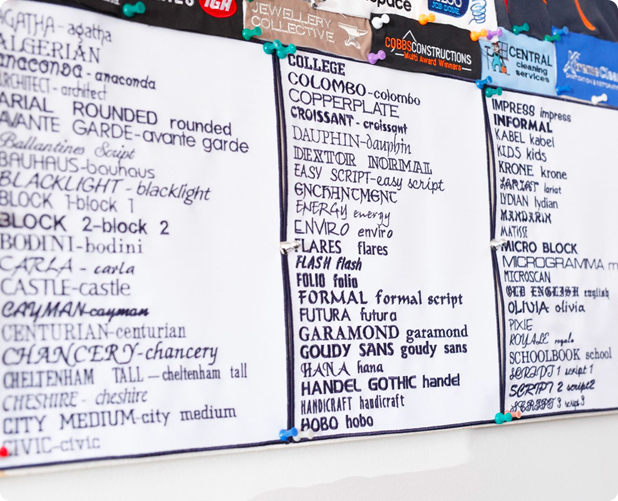 IGH
JEWELLERY
COLLECTIVE
space
COBBSCONSTRUCTIONS
Multi Award Winners
CENTRAL
cleaning
services
AGATHA-agatha
ALGERIAN
ANACONDA-anaconda
ARCHITECT-architect
ARIAL ROUNDED rounded
AVANTE GARDE-avante garde
Ballantines Script
BAUHAUS-bauhaus
BLACKLIGHT-blacklight
BLOCK 1-block 1
BLOCK 2-block 2
BODINI-bodini
CARLA - carla
CASTLE-castle
CAYMAN-cayman
CENTURIAN-centurian
CHANCERY-chancery
CHELTENHAM TALL-cheltenham tall
CHESHIRE - cheshire
CITY MEDIUM-city medium
CIVIC-civic
COLLEGE
COLOMBO-colombo
COPPERPLATE
CROISSANT-croissant
DAUPHIN-dauphin
DEXTOR NORMAL
EASY SCRIPT-easy script
ENCHANTMENT
ENERGY energy
ENVIRO enviro
FLARES flares
FLASH flash
FOLIO folio
FORMAL formal script
FUTURA futura
GARAMOND garamond
GOUDY SANS goudy sans
HANA hana
HANDEL GOTHIC handel
HANDICRAFT handicraft
HOBO hobo
IMPRESS impress
INFORMAL
KABEL kabel
KIDS kids
KRONE krone
LARIAT lariat
LYDIAN lydian
MANDARIN
MATISSE
MICRO BLOCK
MICROGRAMMA m
MICROSCAN
OLD ENGLISH english
OLIVIA olivia
PIXIE
ROYALE royale
SCHOOLBOOK school
SCRIPT 1 script 1
SCRIPT 2 script2
SCRIPT 3 script3